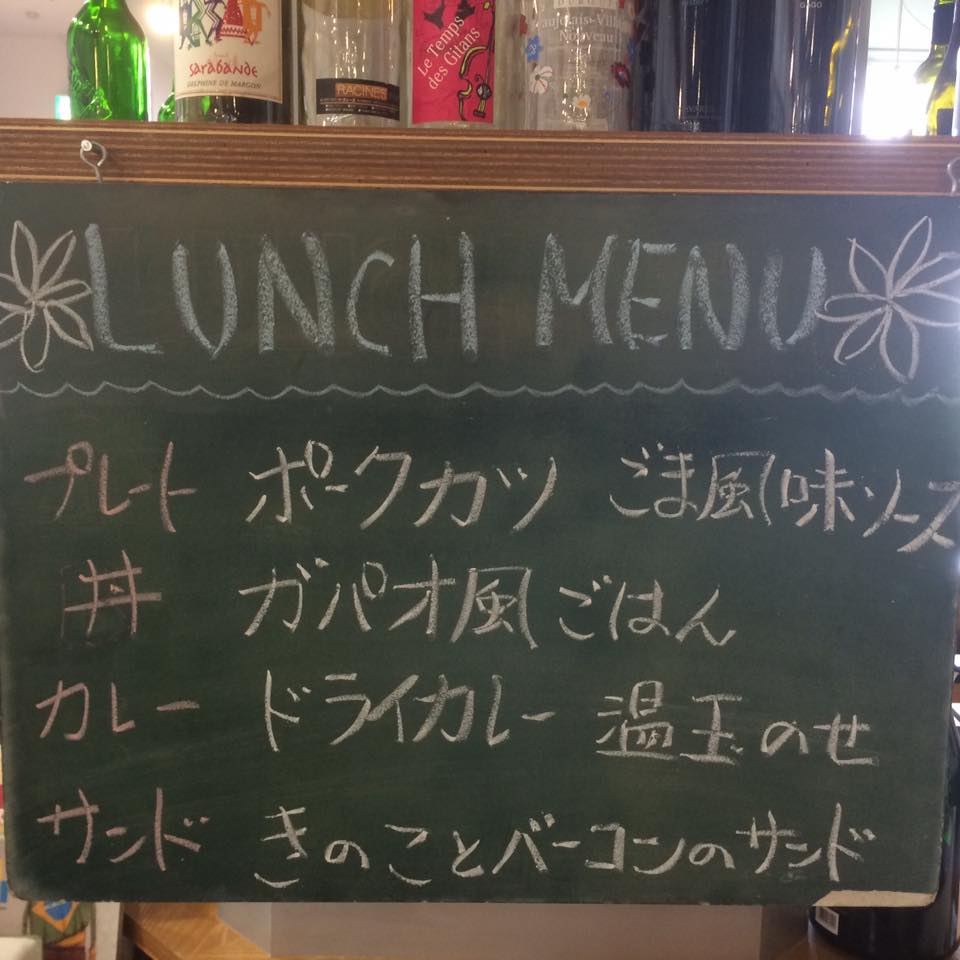 Sarabande
DELPHINE DE MARGON
RACINES
Le Temps
des Gitans
Beaujolais-Villages
Nouveau
GAGO
LUNCH MENU
プレート ポークカツ ごま風味ソース
丼 ガパオ風ごはん
カレー ドライカレー 温玉のせ
サンド きのことベーコンのサンド